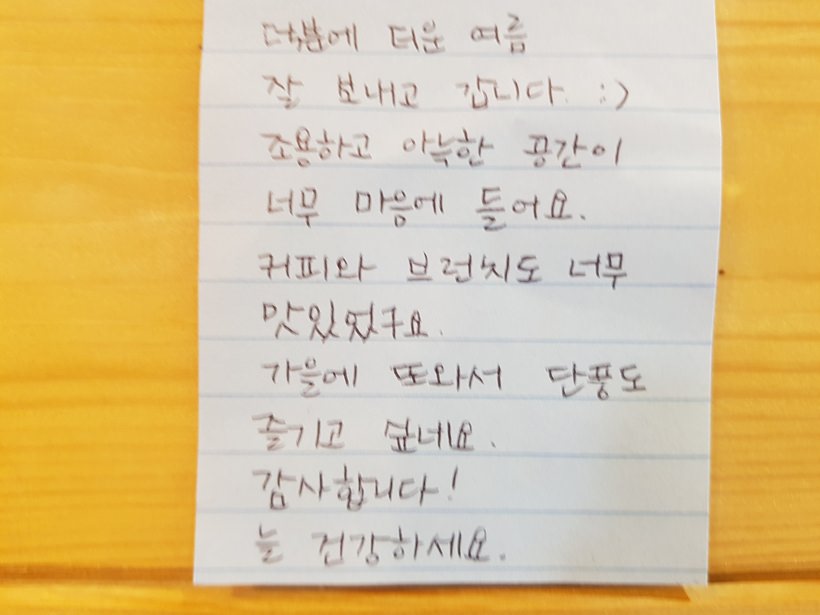 덕분에 더운 여름
잘 보내고 갑니다. :)
조용하고 아늑한 공간이
너무 마음에 들어요.
커피와 브런치도 너무
맛있었구요.
가을에 또와서 단풍도
즐기고 싶네요.
감사합니다!
늘 건강하세요.